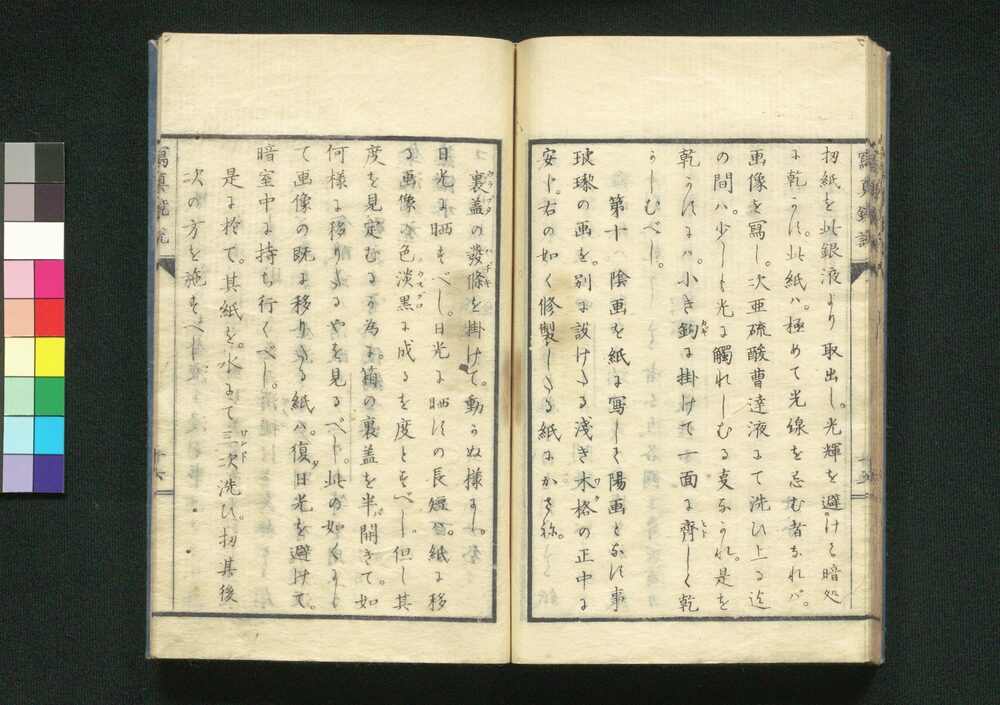 寫真鏡説
扨紙を此銀液より取出し。光輝を避けて暗処
に乾かす。此紙ハ。極めて光線を忌む者なれバ。
画像を寫し。次亜硫酸曹達液にて洗ひ上る迄
の間ハ。少しも光に觸れしむる支なかれ。是を
乾かすにハ。小き鈎カギに掛けて一面に齊ヒトしく乾
かしむべし。
第十八 陰画を紙に寫して陽画となす事
玻瓈の画を。別に設けたる浅き木格ワクの正中に
安じ。右の如く修製したる紙にかさね。
裏蓋ウラブタの發條ハヂキを掛けて。動かぬ様にし。
日光に晒すべし。日光に晒すの長短ハ。紙に移
る画像の色淡黒ウスグロに成るを度とすべし。但し其
度を見定むるが為に。箱の裏蓋を半バ開きて。如
何様に移りたるやを見るべし。此の如くにし
て画像の既に移りたる紙ハ。復タ日光を避けて。
暗室中に持ち行くべし。
是に於て。其紙を。水にて三次サンド洗ひ。扨其後
次の方を施すべし。
寫真鏡説